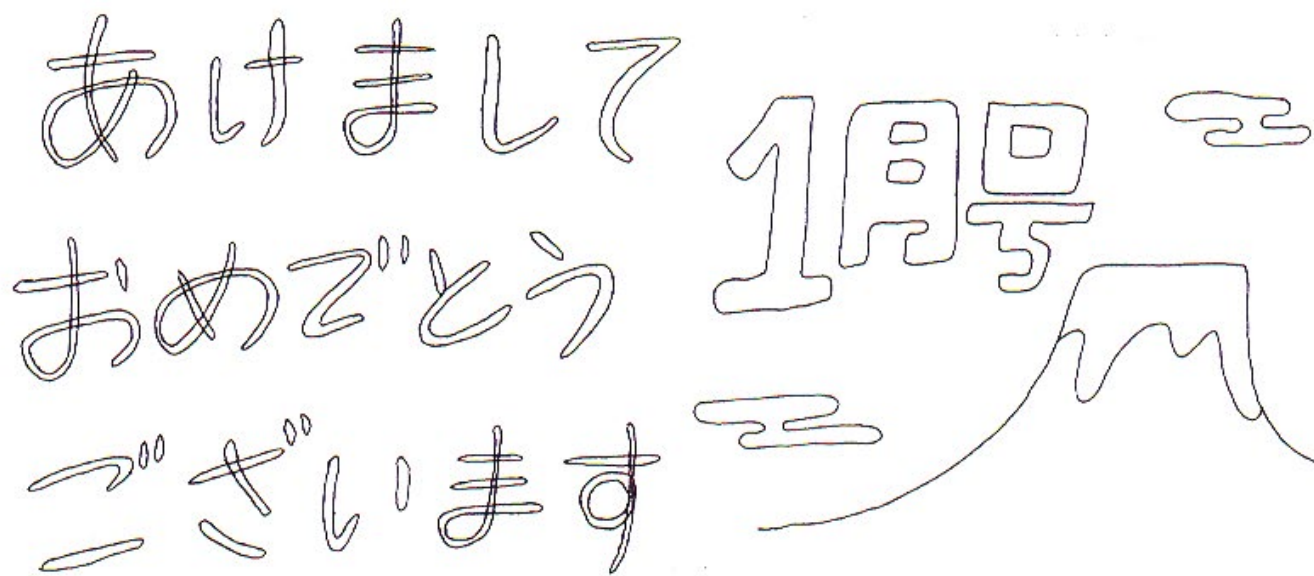 あけまして
おめでとう
ございます
1月号